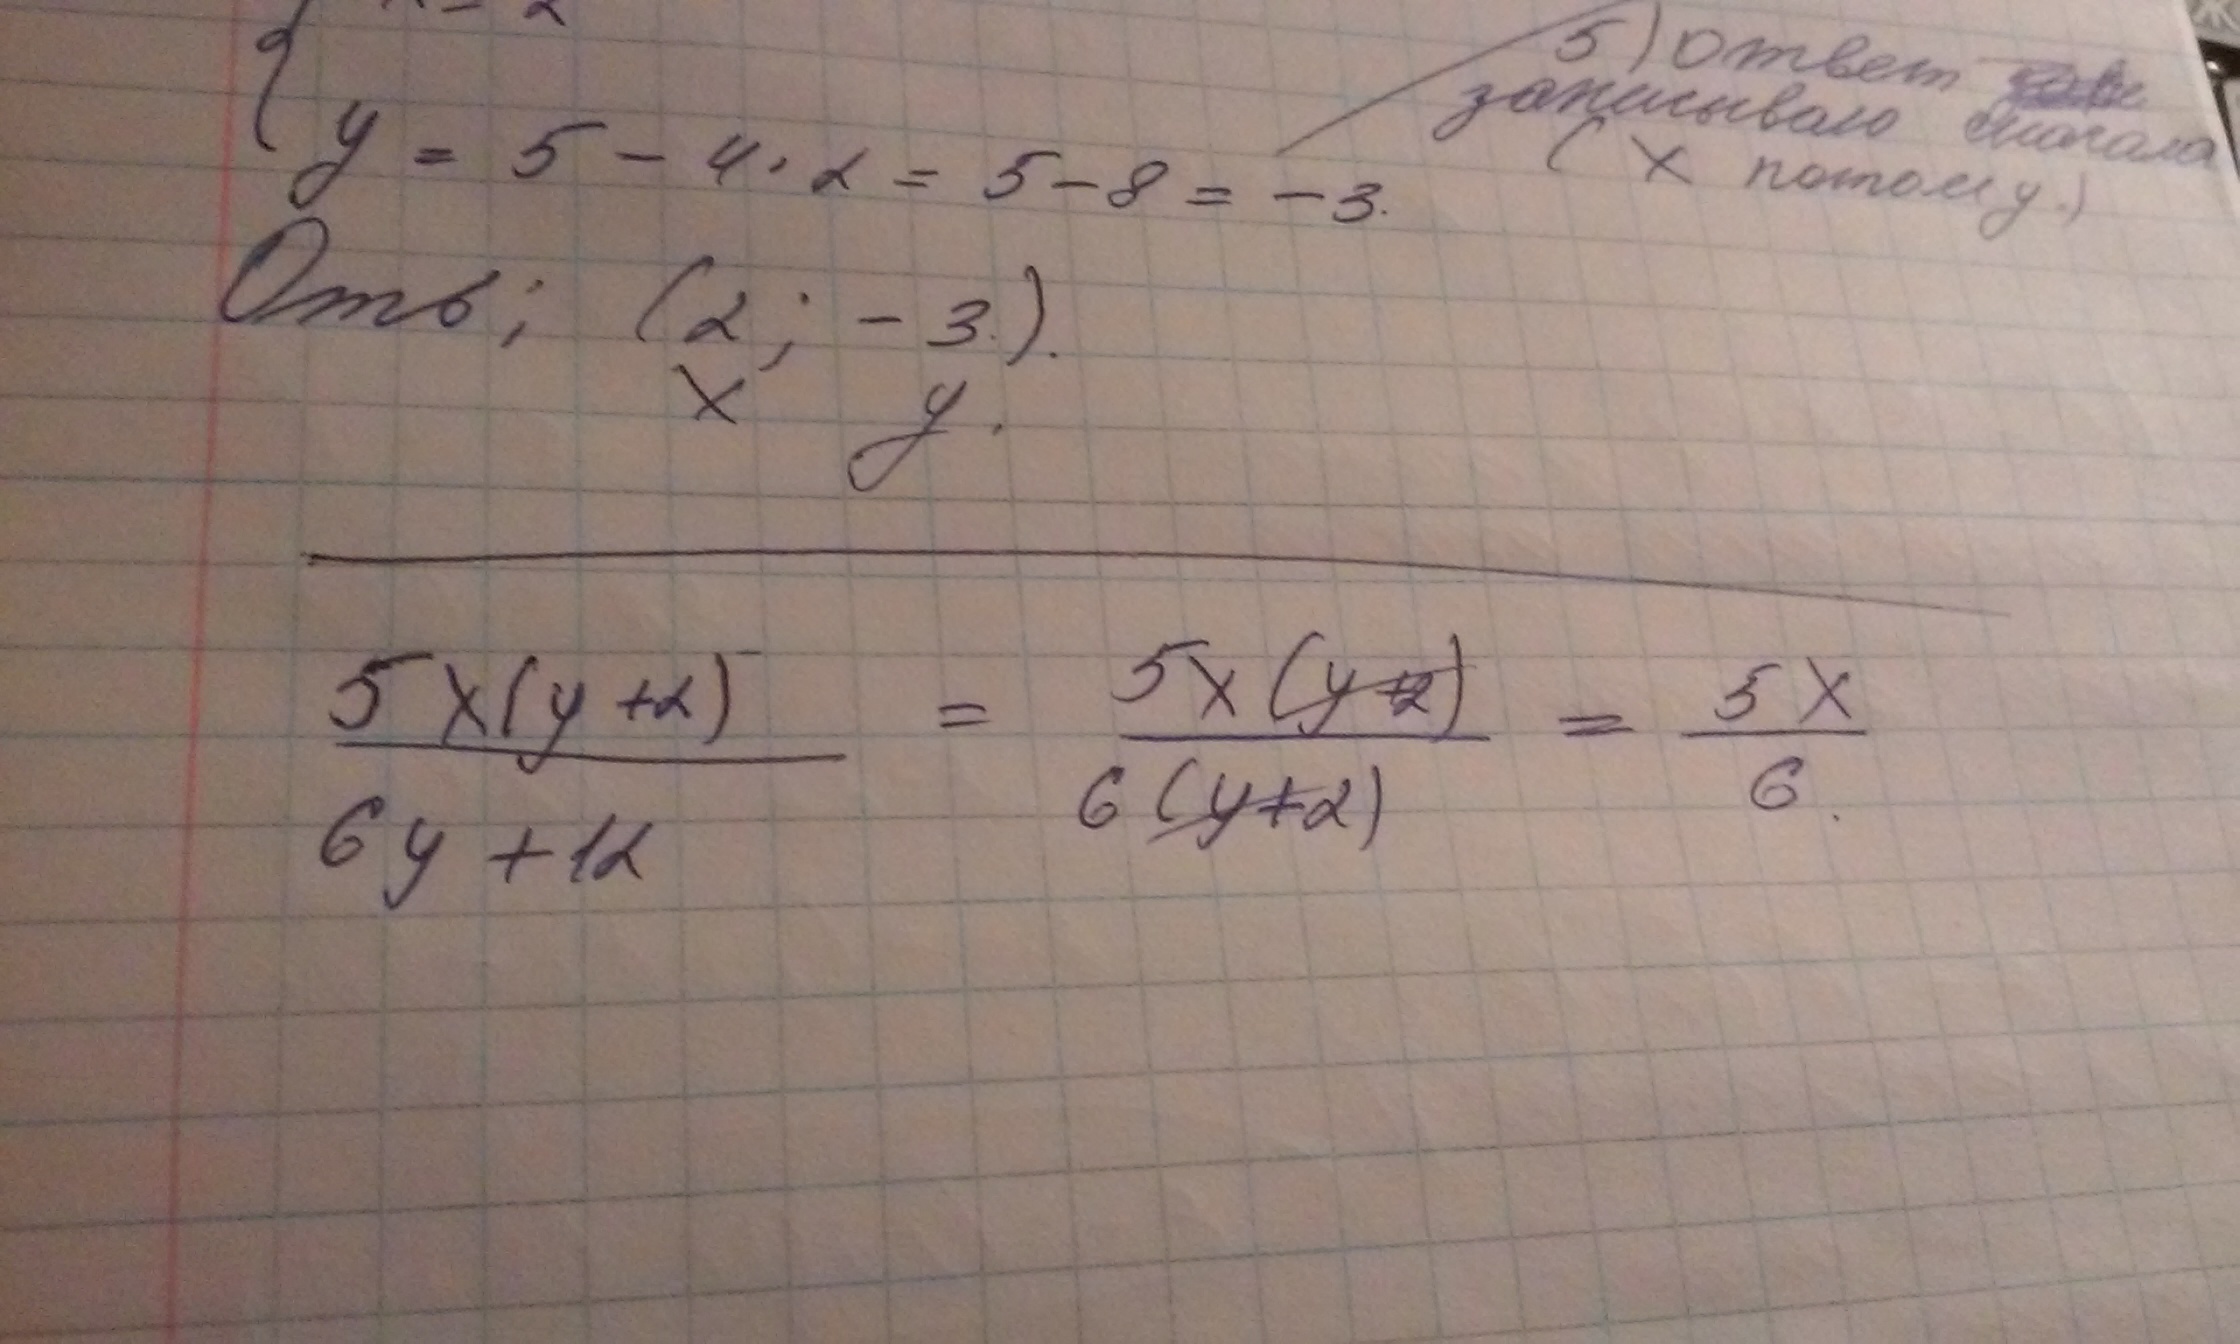 x = 2
y = 5 - 4 · 2 = 5 - 8 = -3.
5) Ответ
записываю сначала
( x потом y.)
Отв; (2; -3.).
x y.
5x(y+2) = 5x(y+2) = 5x
6y+12 6(y+2) 6.